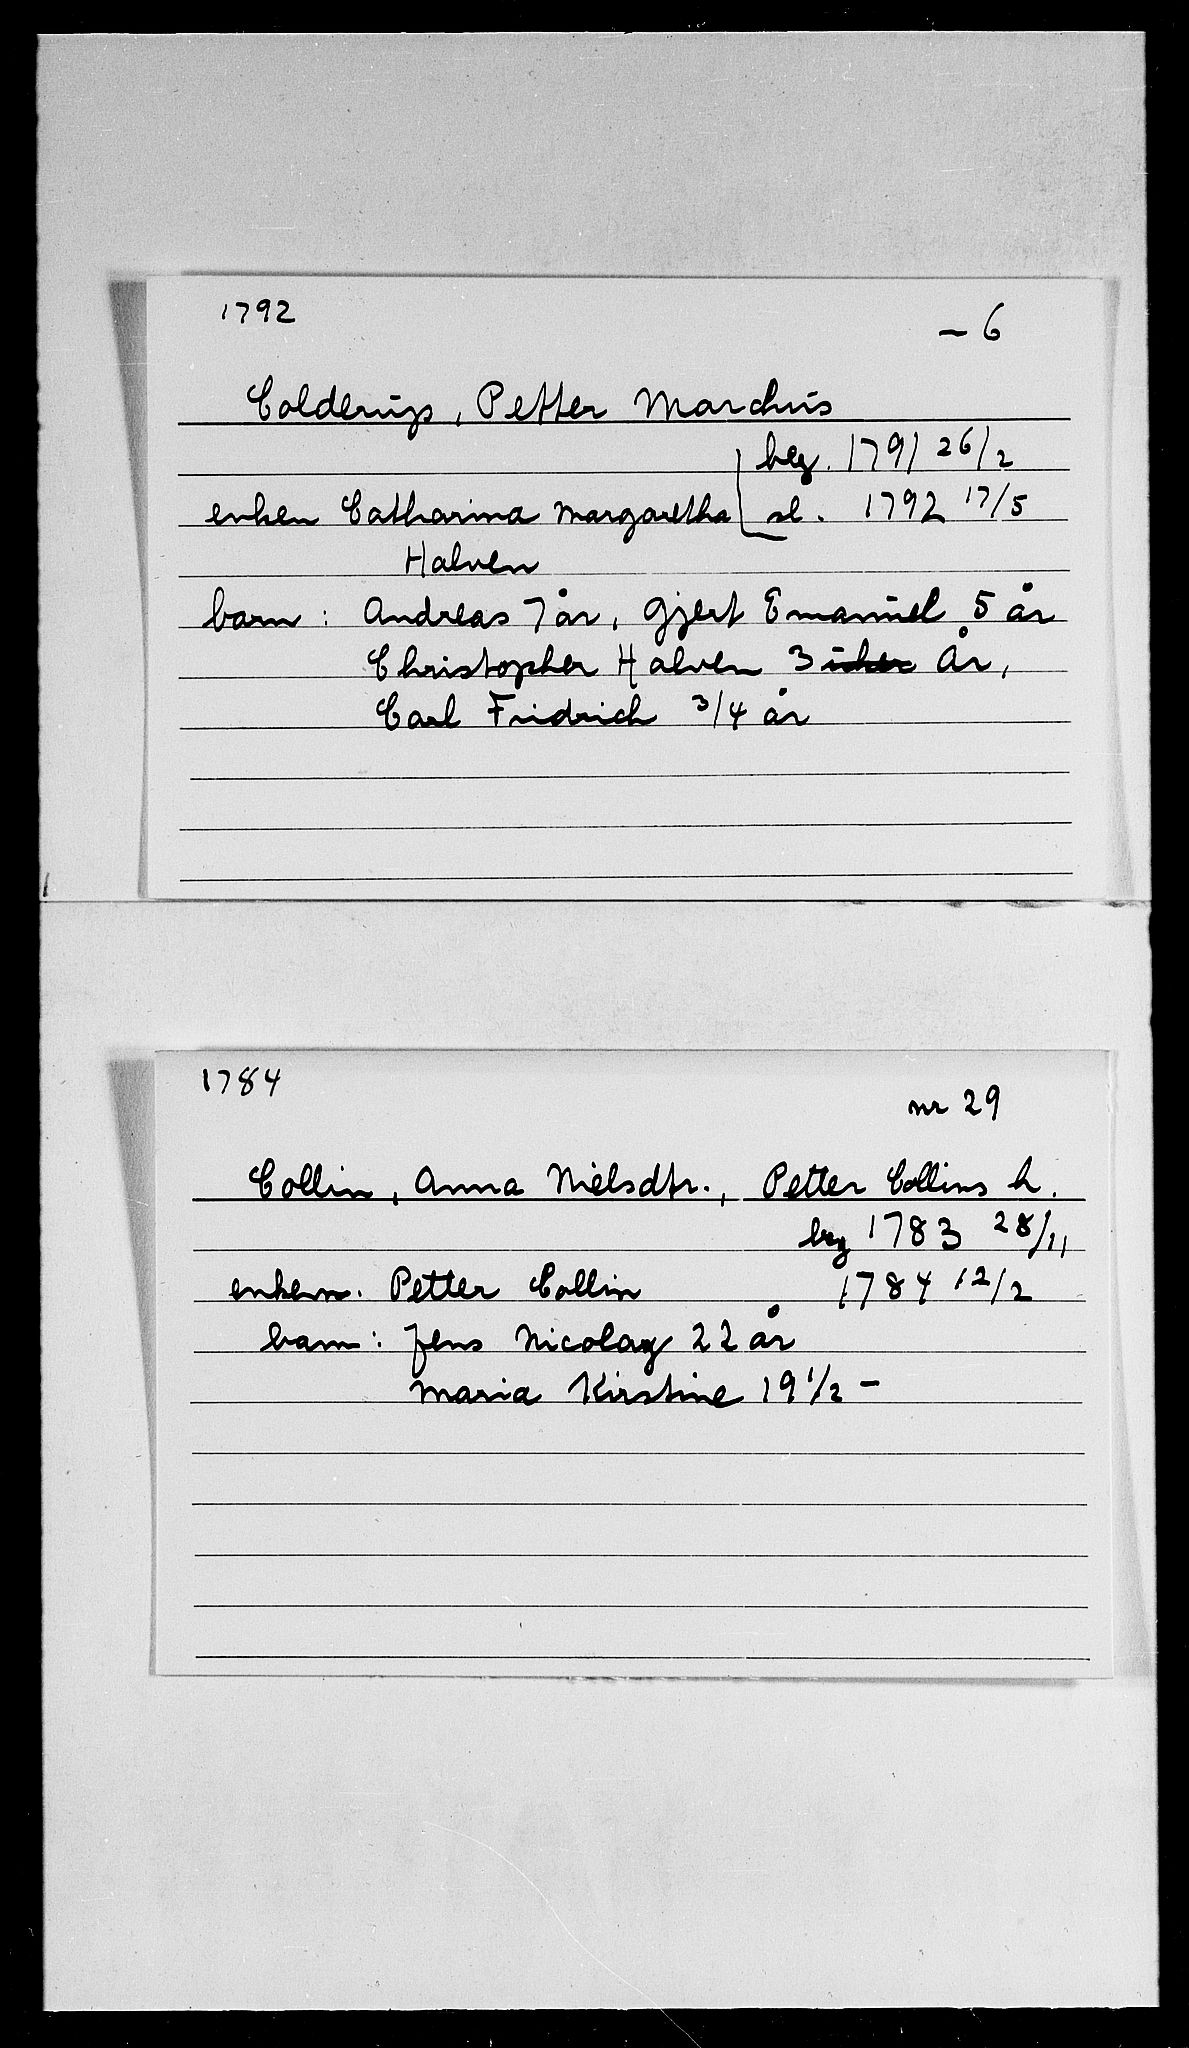 1792
- 6
Colderup, Petter Marchus
beg. 1791 26/2
enken Catharina Margaretha sl. 1792 17/5
Halven
barn: Andreas 7 år, Gjert Emanuel 5 år
Christopher Halven 3 År,
Carl Fridrich 3/4 år
1784
nr 29
Collin, Anna Nielsdtr., Petter Collins h.
beg 1783 28/11
enkem. Petter Collin 1784 12/2
barn: Jens Nicolay 22 år
Maria Kirstine 19 1/2 -